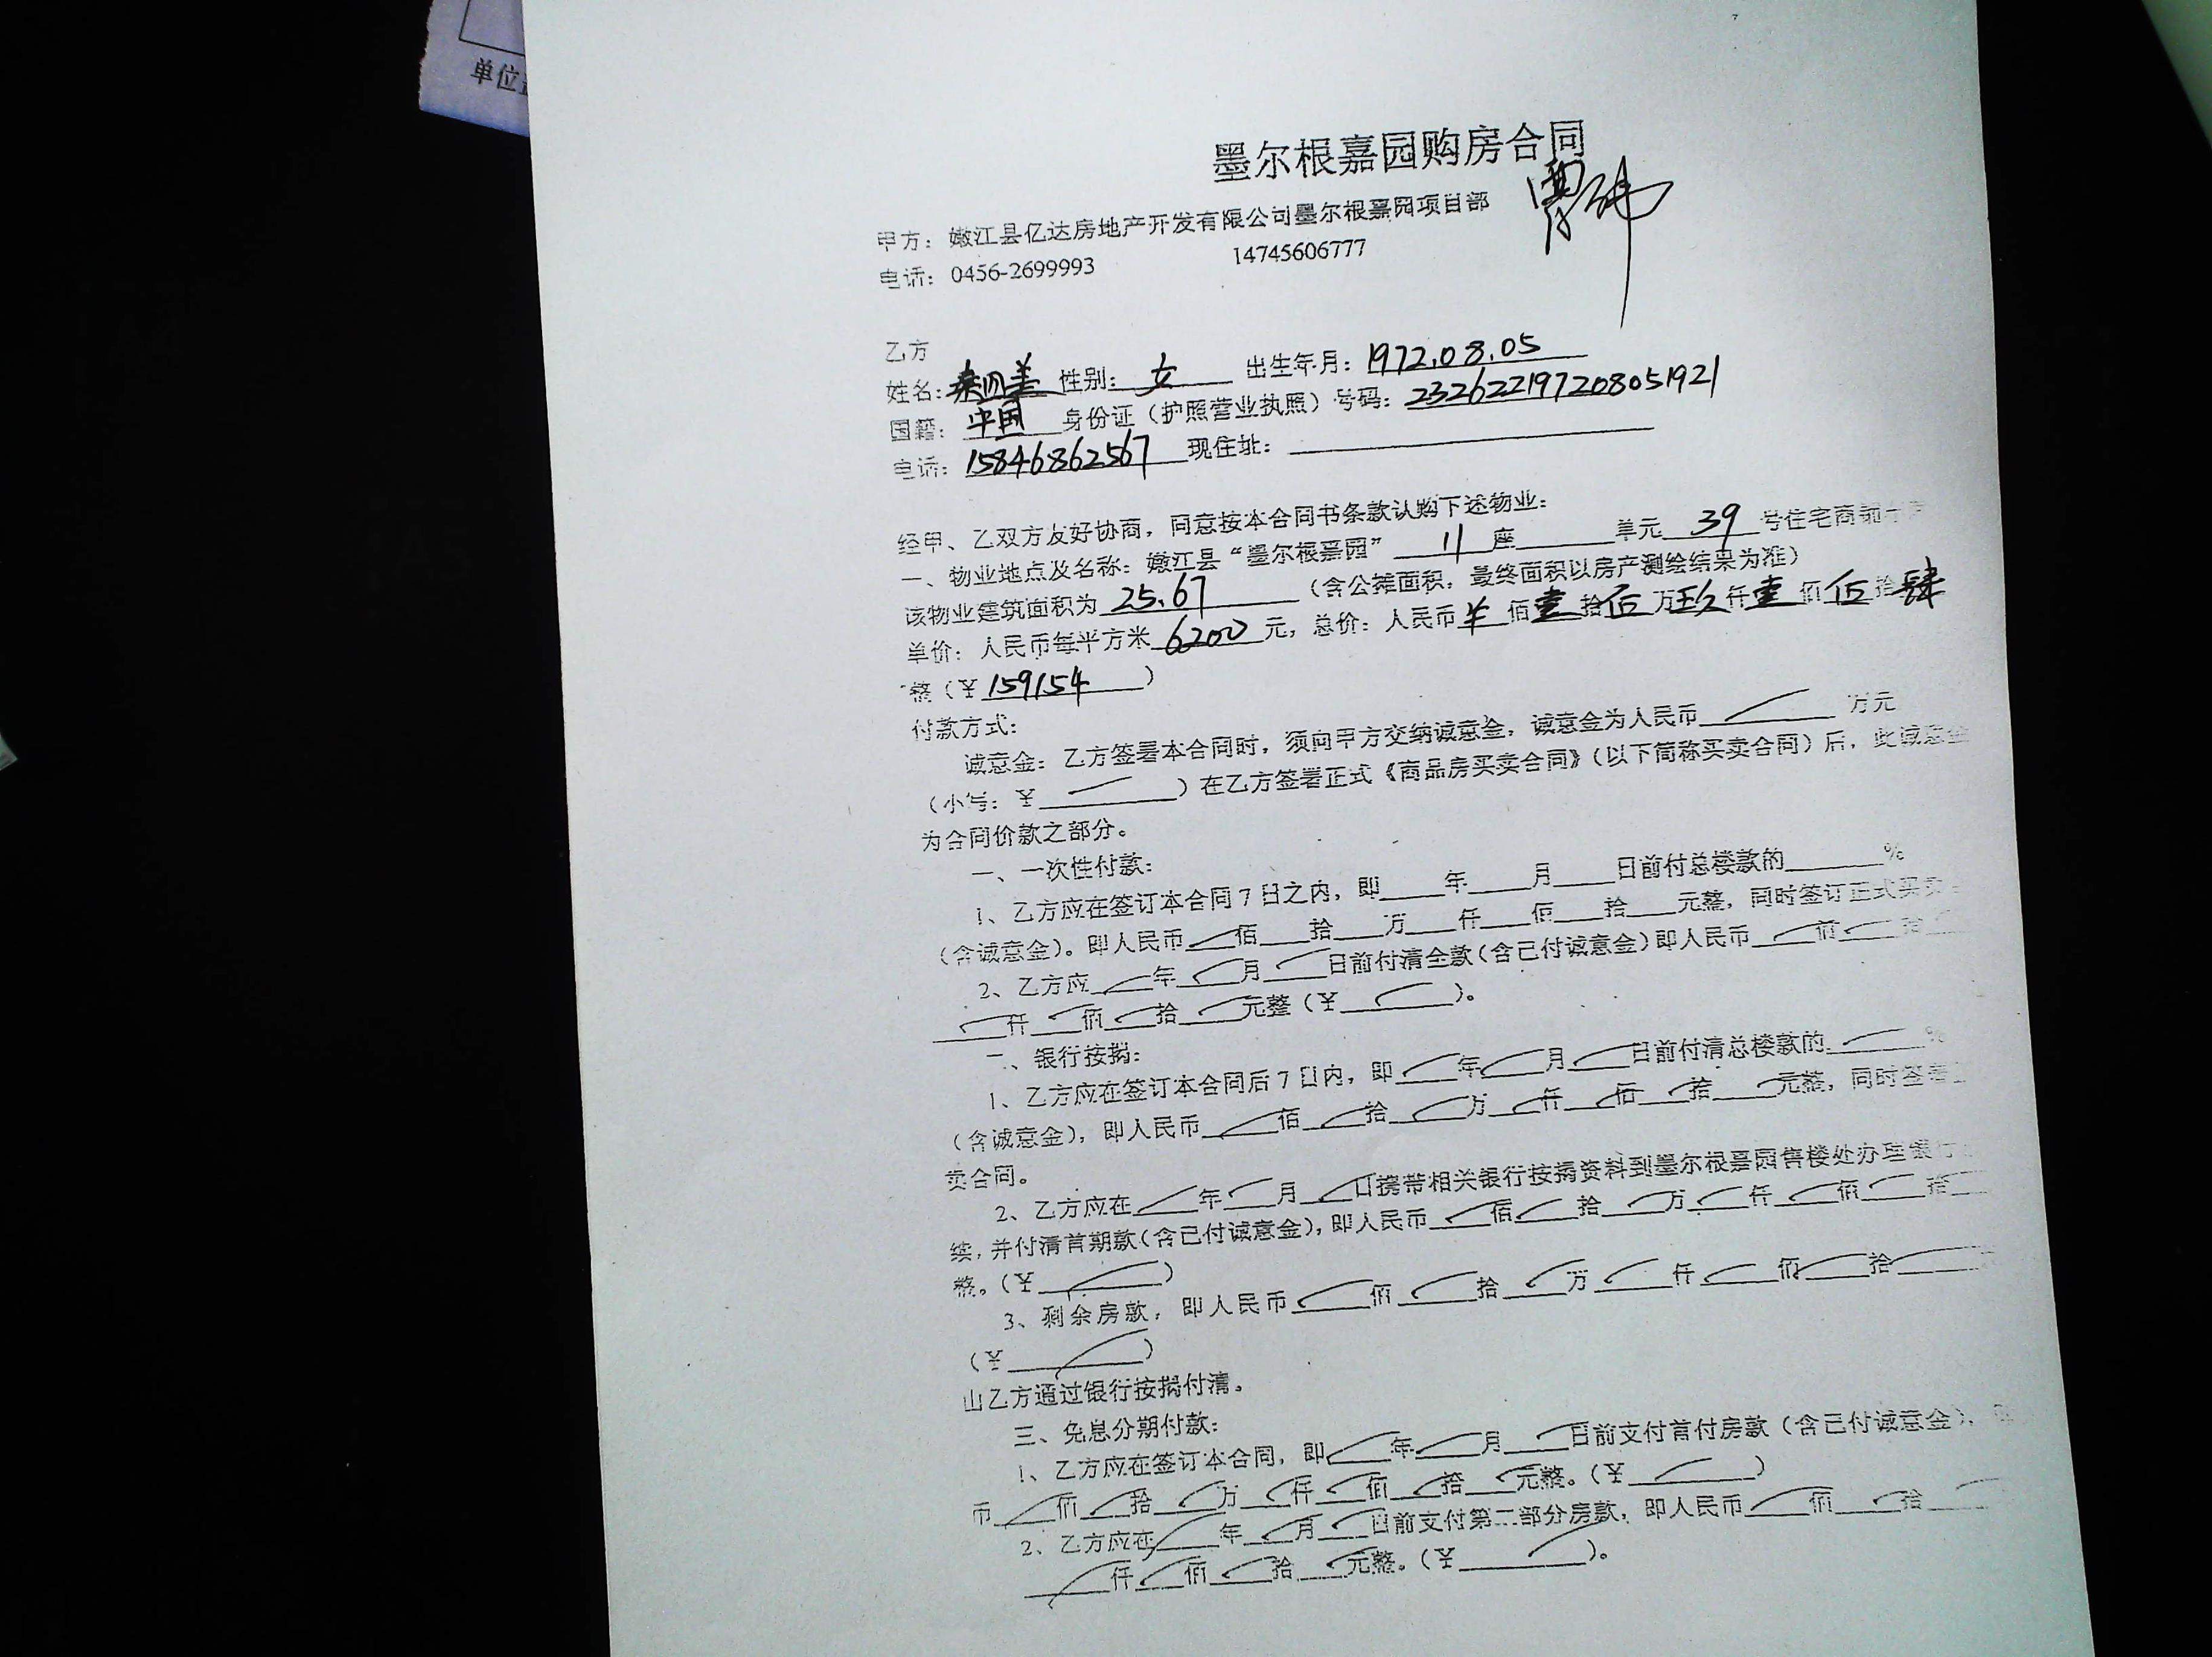 单位
墨尔根嘉园购房合同
甲方：嫩江县亿达房地产开发有限公司墨尔根嘉园项目部
电话：0456-2699993 14745606777
乙方
姓名： 性别：女 出生年月：1972.08.05
国籍：中国 身份证（护照营业执照）号码：232622197208051921
电话：15846862567 现住址：
经甲、乙双方友好协商，同意按本合同书条款认购下述物业：
一、物业地点及名称：嫩江县“墨尔根嘉园” 11 座 单元 39 号住宅商铺
该物业建筑面积为 25.67 （含公摊面积，最终面积以房产测绘结果为准）
单价：人民币每平方米 6200 元，总价：人民币 佰 壹 拾 伍 万 玖 仟 壹 佰 伍 拾 肆
整（¥ 159154 ）
付款方式：
诚意金：乙方签署本合同时，须向甲方交纳诚意金，诚意金为人民币 万元
（小写：¥ ）在乙方签署正式《商品房买卖合同》（以下简称买卖合同）后，此诚意金
为合同价款之部分。
一、一次性付款：
1、乙方应在签订本合同7日之内，即 年 月 日前付总楼款的 %
（含诚意金）。即人民币 佰 拾 万 仟 佰 拾 元整，同时签订正式买卖
2、乙方应 年 月 日前付清全款（含已付诚意金）即人民币 佰 拾
仟 佰 拾 元整（¥ ）。
二、银行按揭：
1、乙方应在签订本合同后7日内，即 年 月 日前付清总楼款的 %
（含诚意金），即人民币 佰 拾 万 仟 佰 拾 元整，同时签署
卖合同。
2、乙方应在 年 月 日携带相关银行按揭资料到墨尔根嘉园售楼处办理银行
续，并付清首期款（含已付诚意金），即人民币 佰 拾 万 仟 佰 拾
整。（¥ ）
3、剩余房款，即人民币 佰 拾 万 仟 佰 拾
（¥ ）
由乙方通过银行按揭付清。
三、免息分期付款：
1、乙方应在签订本合同，即 年 月 日前支付首付房款（含已付诚意金），即
币 佰 拾 万 仟 佰 拾 元整。（¥ ）
2、乙方应在 年 月 日前支付第二部分房款，即人民币 佰 拾
仟 佰 拾 元整。（¥ ）。